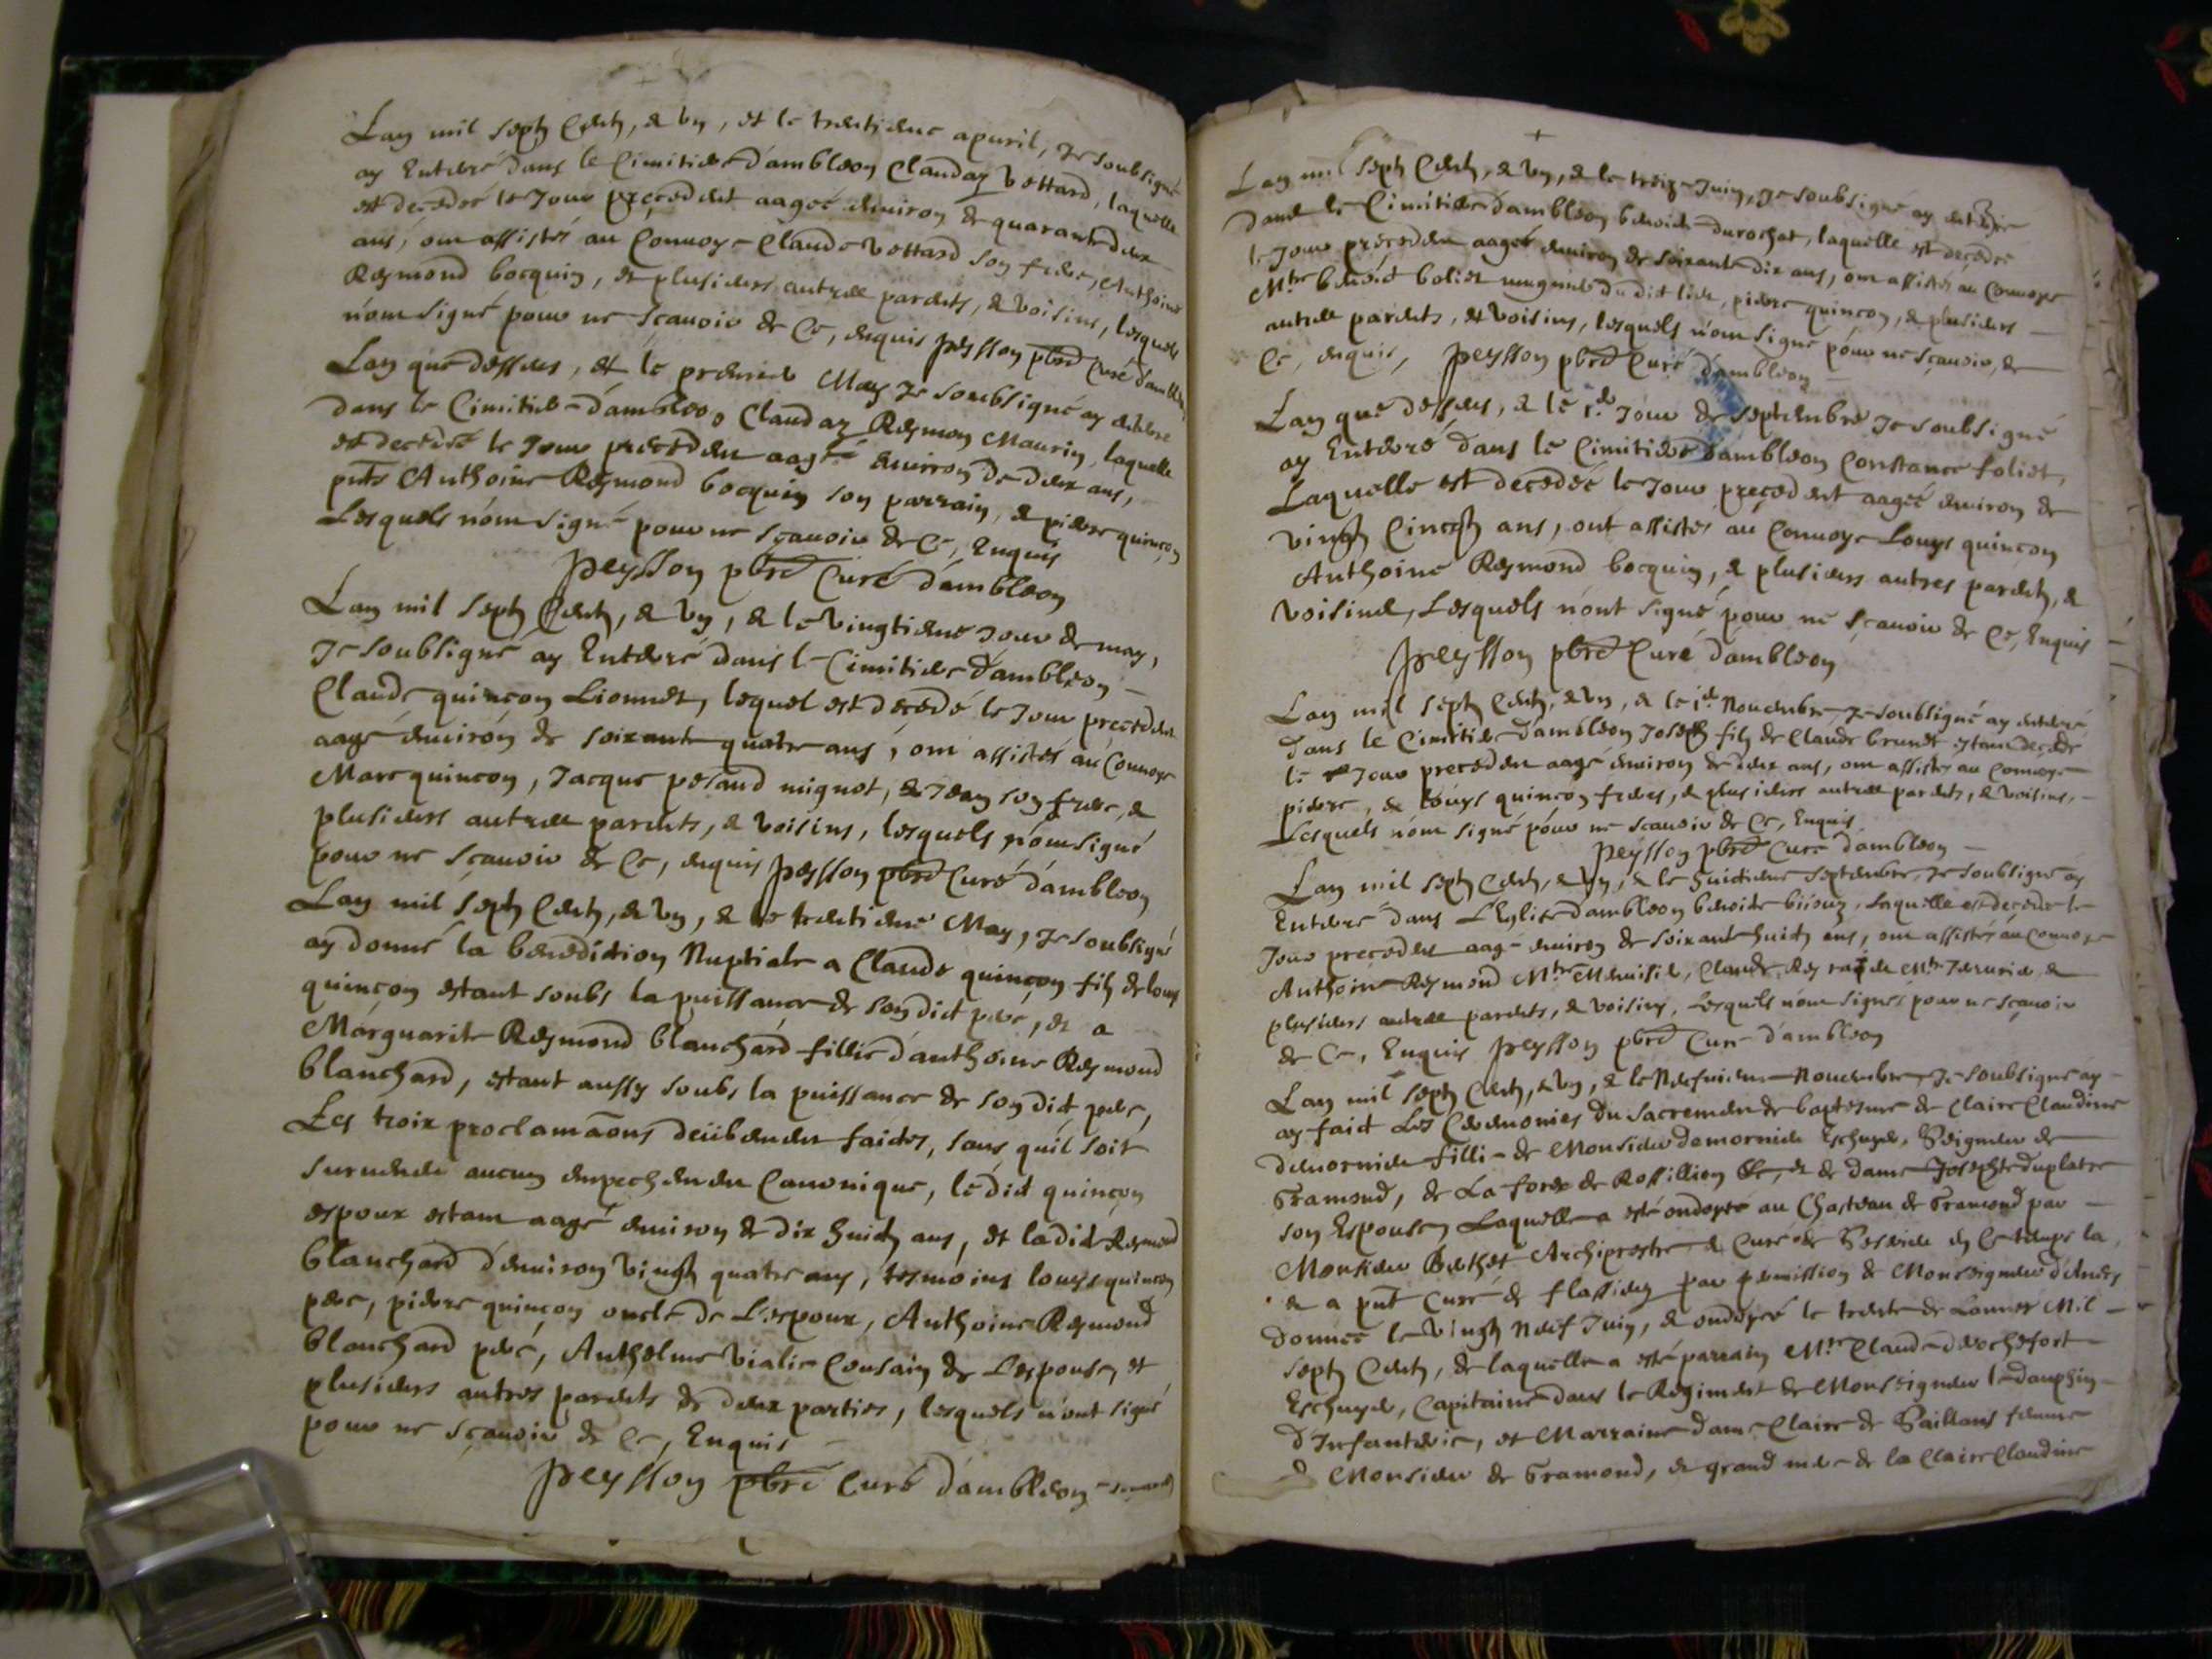 Lan mil sept cents, & un, et le trentieme apuril, Je soubsigné
ay Enterré dans le Cimitiere d'ambleon Clauday vettard, laquelle
est decedéé le Jour precedent aageé environ de quarante deux
ans, ont assistés au Convoye Claude vettard son frere, Anthoine
Reymond bocquin, et plusieurs autres parents, & voisins, lesquels
n'ont signé pour ne sçavoir de ce, enquis peysson pbrē Curé d'ambleon
Lan que dessus, et le premier May Je soubsigné ay enterre
dans le Cimitiere d'ambleon Clauday Reymon Maurin, laquelle
est decedéé le Jour preceden aagéé environ de deux ans,
pnts Anthoine Reymond bocquin son parrain, & piere quinçon
Lesquels n'ont signé pour ne sçavoir de ce, Enquis
peysson pbrē Curé d'ambleon
Lan mil sept Cents, & un, & le vingtieme Jour de may,
Je soubsigné ay Enterré dans le Cimitiere d'ambleon
Claude quinçon Lionnet, lequel est decedé le Jour preceden
aagé environ de soixante quatre ans, ont assistés au Convoye
Marc quincon, Jacque peland mignot, & Jean son frere, &
plusieurs autres parents, & voisins, lesquels n'ont signé
pour ne sçavoir de ce, enquis peysson pbrē Curé d'ambleon
Lan mil sept Cents, & un, & le trentieme May, Je soubsigné
ay donné la benediction Nuptiale a Claude quinçon fils de louys
quinçon estant soubs la puissance de son dict pere, & a
Marguarite Reymond blanchard fillie d'anthoine Reymond
blanchard, estant aussy soubs la puissance de son dict pere,
Les troix proclamaons deübement faictes, sans quil soit
survenu aucun empechement Canonique, le dict quinçon
espoux estant aagé environ de dix huict ans, et la dict Reymond
blanchard d'environ vingt quatre ans, tesmoins louys quinçon
pere, pierre quinçon oncle de L'espoux, Anthoine Reymond
blanchard pere, Anthelme vialie Cousain de Lespouse, et
plusieurs autres parents de deux parties, lesquels n'ont signé
pour ne sçavoir de ce, Enquis
peysson pbrē Curé d'ambleon
Lan mil sept Cents, & un, & le treize Juin, Je soubsigné ay enterre
dans le Cimitiere d'ambleon benoite durochat, laquelle est decedéé
le Jour preceden aageé environ de soixante dix ans, ont assistés au Convoye
Mtre benoict boliet du dict lieu, piere quinçon, & plusieurs
autres parents, et voisins, lesquels n'ont signé pour ne sçavoir, de
Ce, enquis, peysson pbrē Curé d'ambleon
Lan que dessus, & le 1er Jour de septembre Je soubsigné
ay Enterré dans le Cimitiere d'ambleon Constance foliet,
Laquelle est decedéé le Jour precedent aageé environ de
vingt Cincqt ans, ont assistés au Convoye Louys quinçon
Anthoine Reymond bocquin, & plusieurs autres parents, &
voisins, Lesquels n'ont signé pour ne sçavoir de Ce, Enquis
peysson pbrē Curé d'ambleon
Lan mil sept Cents, & un, & le 1er Novembre, Je soubsigné ay enterré
dans le Cimitiere d'ambleon Joseph fils de Claude brunet estant decedé
le Jour preceden aagé environ de deux ans, ont assistés au Convoye
piere, & louys quinçon freres, & plusieurs autres parents, & voisins,
Lesquels n'ont signé pour ne sçavoir de Ce, Enquis
peysson pbrē Curé d'ambleon
Lan mil sept Cents, & un, & le huictieme septembre, Je soubsigné ay
Enterré dans L'Eglise d'ambleon benoite, Laquelle est decedéé le
Jour precedent aagé environ de soixante huict ans, ont assistés au Convoye
Anthoine Reymond Mtre Menuisier, Claude Mtre &
plusieurs autres parents, & voisins, Lesquels n'ont signés pour ne sçavoir
de Ce, Enquis peysson pbrē Curé d'ambleon
Lan mil sept Cents, & un, & le Novembre, Je soubsigné ay
ay faict Les Ceremonies du sacrement de baptesme de Claire Claudine
demornieu fillie de Monsieur demornieu Eschuyer, Seigneur de
Gramond, de La forêt de Rossillion &c, & de dame Josephte duplatre
son Espouse, Laquelle a esté ondoyée au Chasteau de Gramond par
Monsieur berthet Archiprestre, & Curé de en Ce temps la,
& a pnt Curé de flassieu par permission de Monseigneur
donneé le vingt Neuf Juin, & ondoyeé le trente de Lanneé Mil
sept Cents, de laquelle a esté parrain Mre Claude de rochefort
Eschuyer, Capitaine dans le Regiment de Monseigneur le dauphin
d'Infanterie, et Marraine dame Claire de Saillans femme
d Monsieur de Gramond, & grand mere de la Claire Claudine